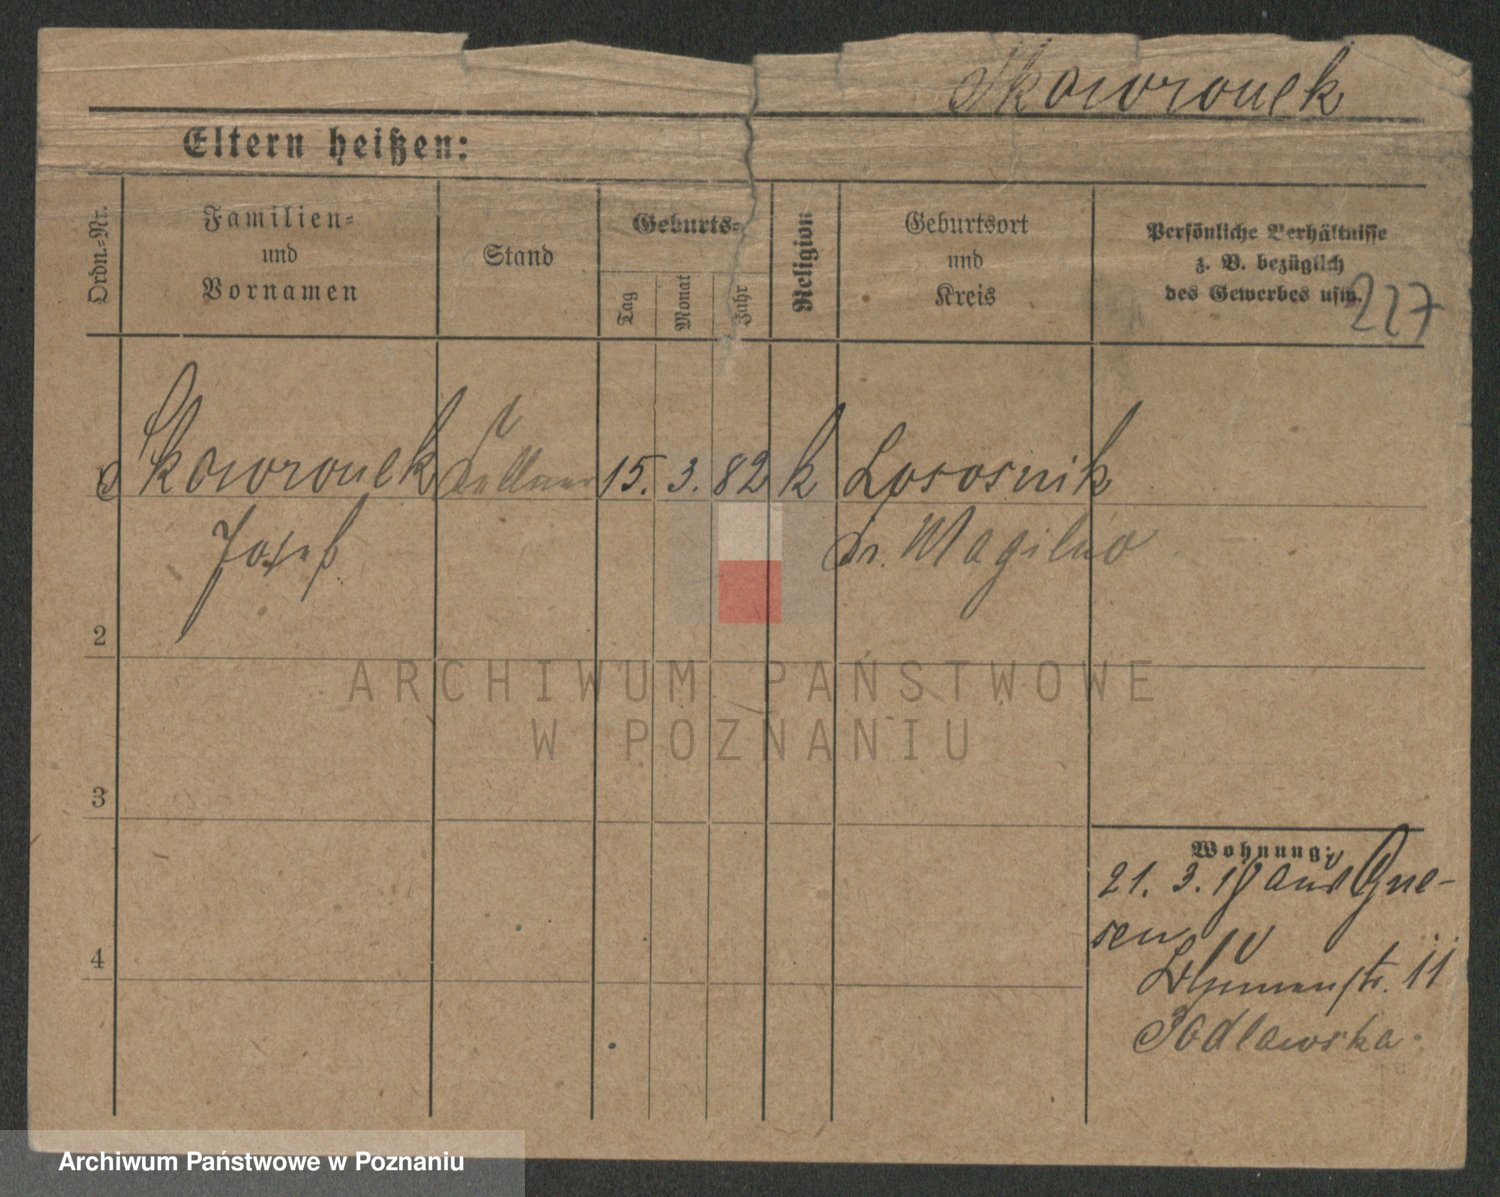 Skowronek
Eltern heißen:
Ordn.-Nr.
Familien-
und
Vornamen
Stand
Geburts-
Tag
Monat
Jahr
Religion
Geburtsort
und
Kreis
Persönliche Verhältnisse
z. B. bezüglich
des Gewerbes usw.
227
Skowronek Kellner 15. 3. 82 k Lososnik
Josef Kr. Mogilno
2
3
4
Wohnung:
21. 3. aus Gne-
sen
Blumenstr. 11
Podlawska
ARCHIWUM PAŃSTWOWE
W POZNANIU
Archiwum Państwowe w Poznaniu